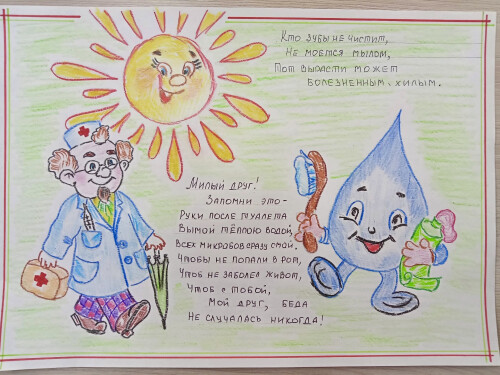 Кто зубы не чистит,
Не моется мылом,
Тот вырасти может
Болезненным, хилым.
Милый друг!
Запомни это-
Руки после туалета
Вымой тёплою водой,
Всех микробов сразу смой.
Чтобы не попали в рот,
Чтоб не заболел живот,
Чтоб с тобой,
Мой друг, беда
Не случалась никогда!